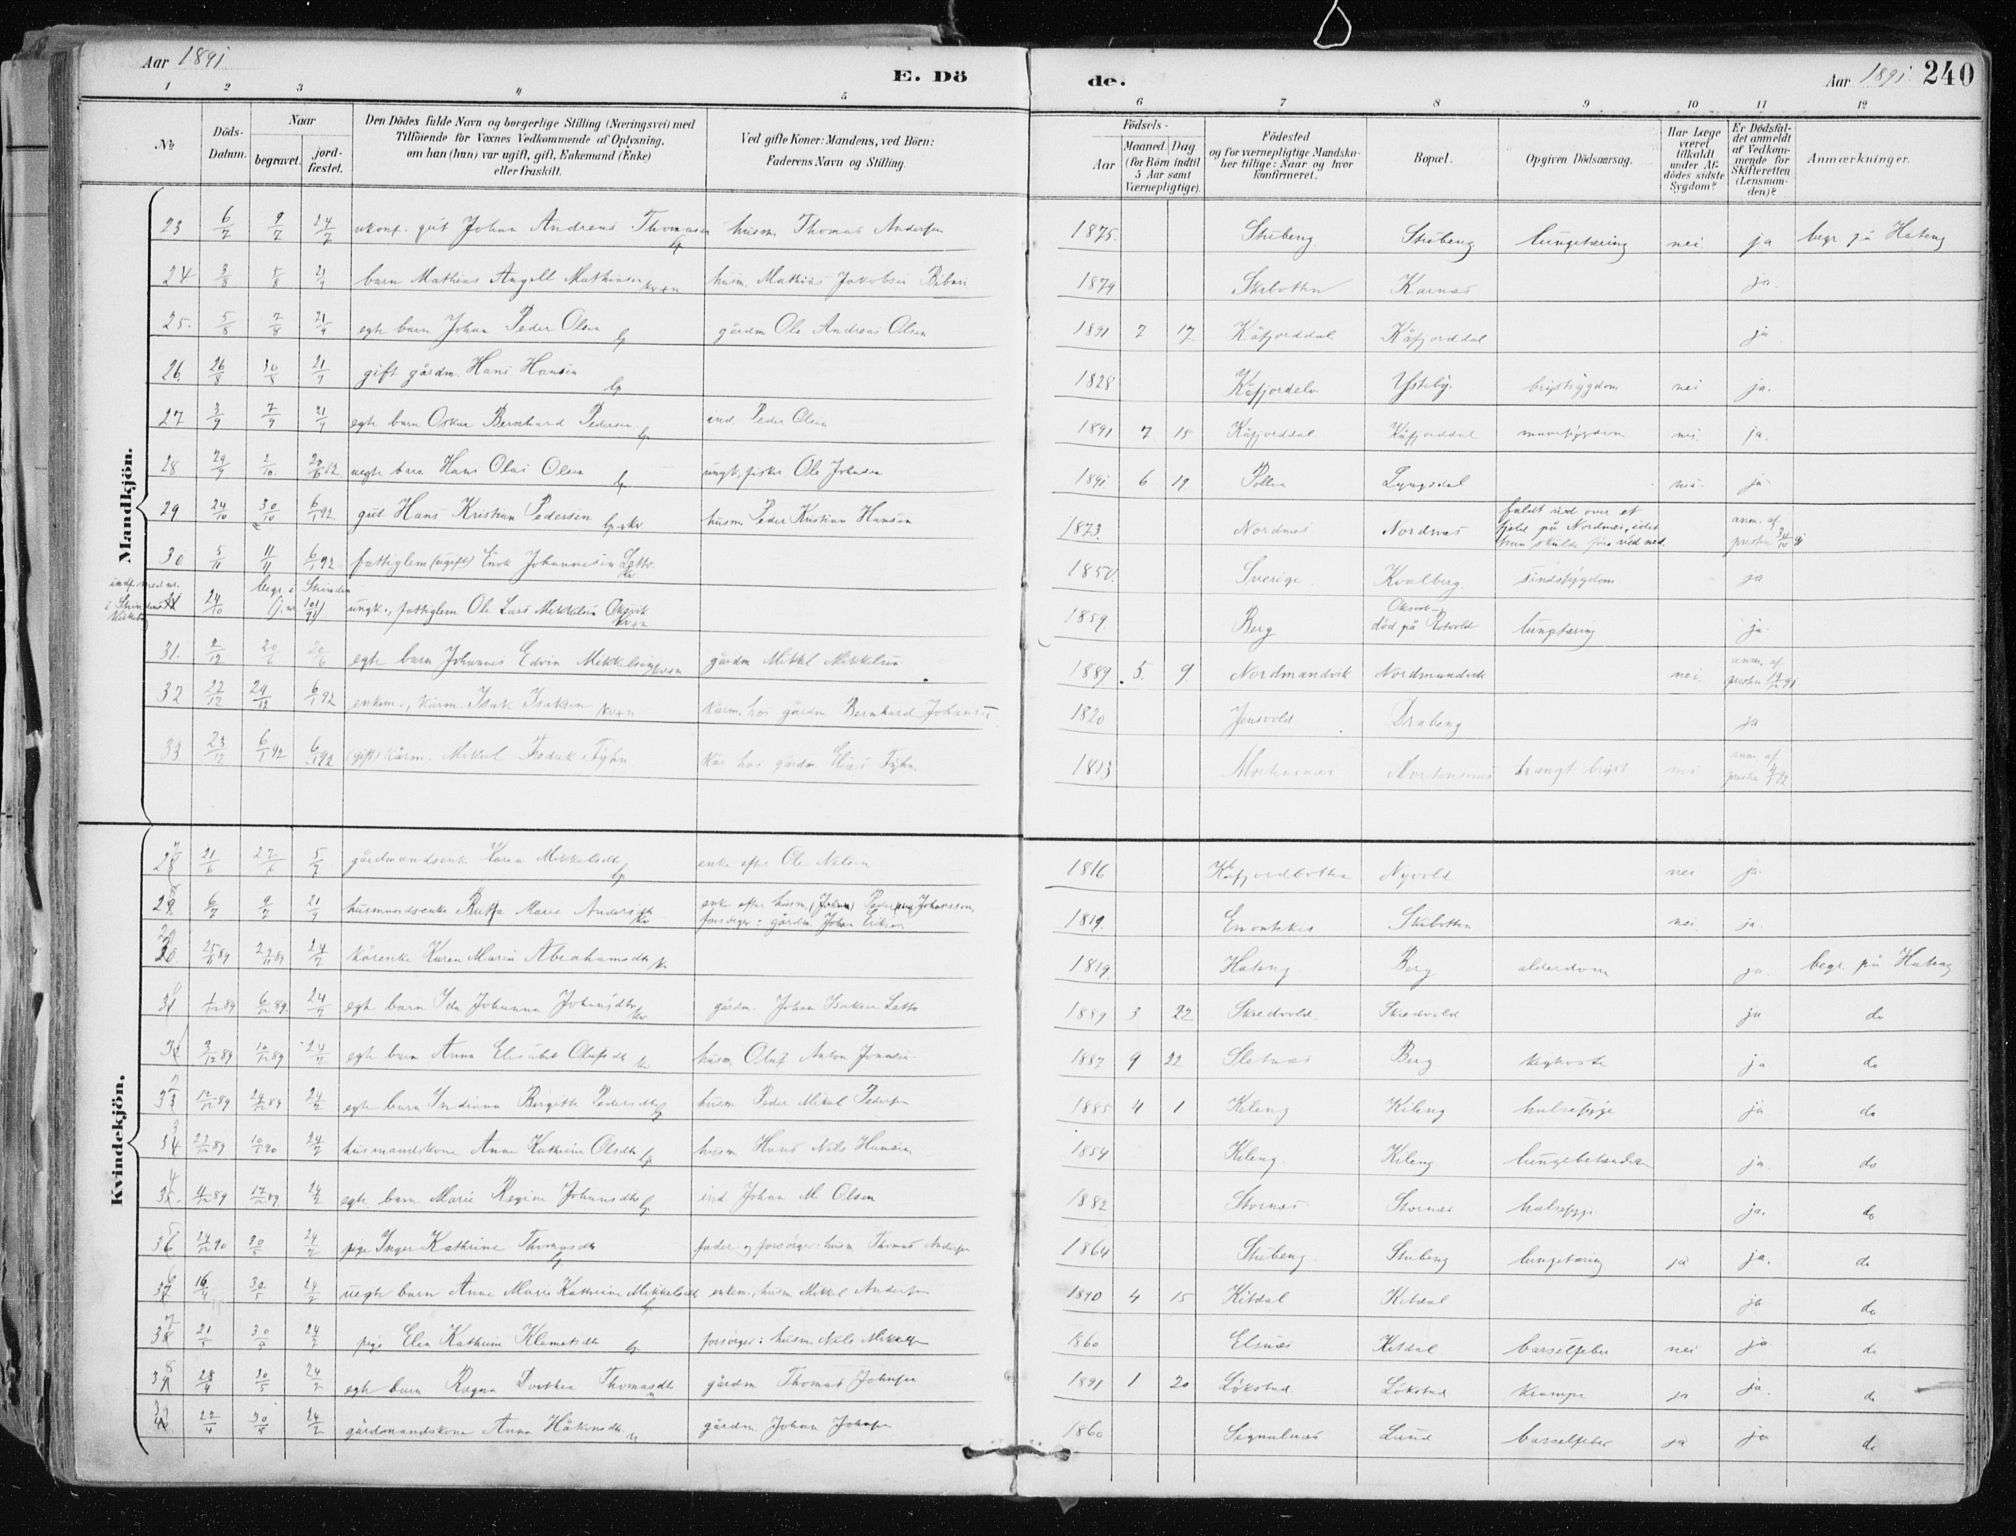 Aar 1891
E. Dö
de.
Aar 1891.
240
1 2 3 4 5 6 7 8 9 10 11 12
No
Döds-Datum.
Naar
begravet.
jord-fæstet.
Den Dödes fulde Navn og borgerlige Stilling (Næringsvei) med
Tilföiende for Voxnes Vedkommende af Oplysning,
om han (hun) var ugift, gift, Enkemand (Enke)
eller fraskilt.
Ved gifte Koner: Mandens, ved Börn:
Faderens Navn og Stilling.
Födsels-
Aar
Maaned. Dag
(for Börn indtil
5 Aar samt
Værnepligtige).
Födested
og for værnepligtige Mandska-
ber tillige: Naar og hvor
konfirmeret.
Bopæl.
Opgiven Dödsaarsag.
Har Læge
været
tilkaldt
under Af-
dödes sidste
Sygdom?
Er Dödsfal-
det anmeldt
af Vedkom-
mende for
Skifteretten
(Lensman-
den)?
Anmærkninger.
Mandkjön.
23 6/7 9/7 24/7 ukonf. gut Johan Andreas Thomasen husm. Thomas Andersen 1875. Stubeng Stubeng lungetæring nei ja begr. på Hateng
24 3/8 5/8 21/9 barn Mathias Angell Mathiasen husm. Mathias Jakobsen 1879 Skibotten Karnæs ja.
25. 5/8 7/8 21/9 egte barn Johan Peder Olsen gårdm Ole Andreas Olsen 1891 2 17 Kåfjorddal Kåfjorddal ja
26 26/8 30/8 21/9 gift gårdm. Hans Hansen 1828 Ysteby. brystsygdom nei ja.
27 3/9 7/9 21/9 egte barn Oskar Bernhard Pedersen ind. Peder Olsen 1891 7 15 Kåfjorddal Kåfjorddal mavesygdom nei ja.
28 29/9 2/10 uegte barn Hans Olai Olsen ungk. fisker Ole Johnsen 1891 6 19 Pollen Lyngsdal nei. ja
29 24/10 30/10 6/1 92 gut Hans Kristian Pedersen husm Peder Kristian Hansen 1873. Nordnæs Nordnæs faldt ud over et
fjeld på Nordnæs, idet
han skulde före ved ned. anm. af
presten
30 5/11 11/11 6/1 92 fattiglem (ugift) Enok Johannesen Latto 1850. Sverige Kvalberg. sindssygdom ja
24/10 begr. i Strinden ungk., fattiglem Ole Lars Mikkelsen Oksvik 1859. Berg Oksvik
död på Rotvold lungetæring ja.
31. 2/12 egte barn Johannes Edvin Mikkelsen gårdm Mikkel Mikkelsen 1889 5. 9 Nordmandvik Nordmandvik nei anm. af
presten
32 22/12 29/12 6/1 92 enkem., kårm. Isak Isaksen kårm. hos gårdm Bernhard Johansen 1820 Jensvold Drabeng ja
33 23/12 6/1 92 6/1 92 (gift) kårm. Mikkel Fredrik Fyhn kår hos gårdm Elias Fyhn. 1813 Mortensnæs Mortensnæs trangt bryst nei anm. af
presten
Kvindekjön.
21/6 27/6 5/7 gårdmandsenke Karen Mikkelsdtr enke efter Ole Nilsen 1816 Kåfjordbotten Nyvold nei ja.
6/7 9/7 21/9 husmandsenke Marie Andersdtr enke efter husm.
forsörger: gårdm. Johan Eriksen 1819. Enontekis Skibotten nei ja.
89 89 24/7 kårenke Karen Maria Abrahamsdtr 1819. Hateng Berg alderdom ja. begr. på Hateng
1/12 89 6/12 89 24/7 egte barn Ida Johanna Johansdtr gårdm. Johan Isaksen Latto 1889 3 22 Skredvold. Skredvold ja do
3/12 89 10/12 89 24/7 egte barn Anna Elisabet Olufsdtr husm Oluf Anton Jonasen 1887 9 22 Sletnæs Berg kighoste ja do
12/12 89 24/12 89 24/2 egte barn Indiana Bergitte Pedersdtr husm Peder Mikal Pedersen 1885 4 1 Kileng Kileng halssyge ja do
89 10/1 90 24/2 husmandskone Anne Kathrine Olsdtr husm Hans Nils Hansen 1854 Kileng. Kileng lungebetændelse ja. do
89 17/12 89 24/2 egte barn Marie Regine Johansdtr ind. Johan M. Olsen 1882 Stornæs Stornæs halssyge ja. do
24/12 90 30/5 24/2 pige Inger Kathrine Thomasdtr fader og forsörger: husm Thomas Andersen 1864 Stubeng. Stubeng lungetæring ja ja. do
16/4 30/5 24/2 uegte barn Anne Marie Kathrine Mikkelsdtr enkem., husm Mikkel Andersen 1890 4 15 Kitdal Kitdal ja do
21/5 30/5 24/2 pige Elen Kathrine Klemetsdtr forsörger: husm. Nils Mikkelsen 1860 Elsnæs Kitdal barselfeber nei ja. do
28/4 30/5 24/2 egte barn Ragna Dorthea Thomasdtr gårdm Thomas Johnsen 1891 1 20 Lökstad Lökstad Krampe ja ja. do
22/4 30/5 24/2 gårdmandskone Anna Håkonsdtr gårdm. Johan Johnsen 1860 Signalnæs Lund barselfeber ja ja do